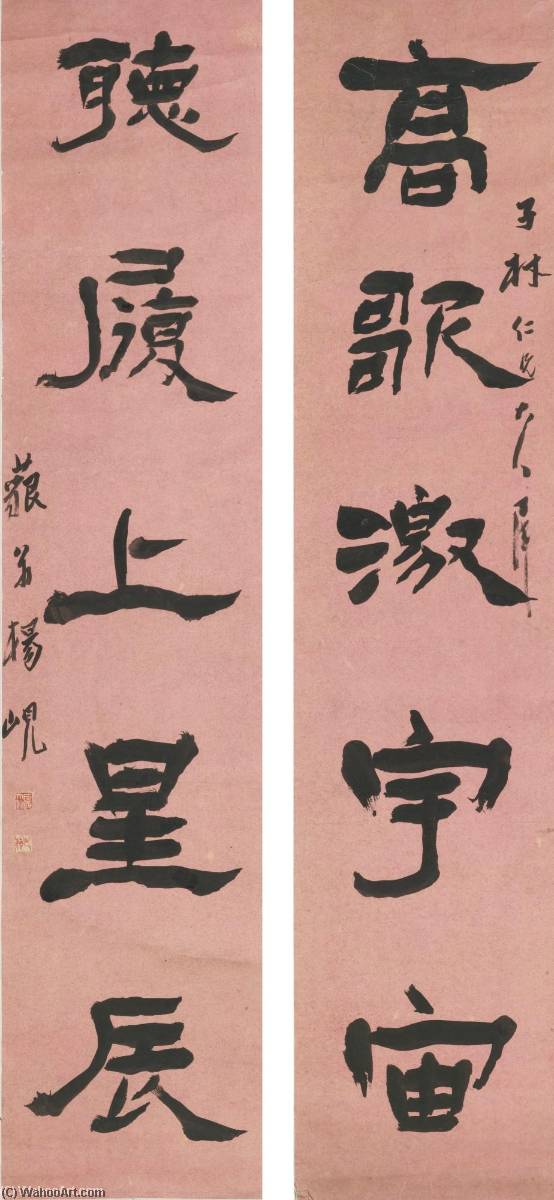 高歌激宇宙
子林仁兄大人屬
聽履上星辰
藐翁楊峴
(C) WahooArt.com